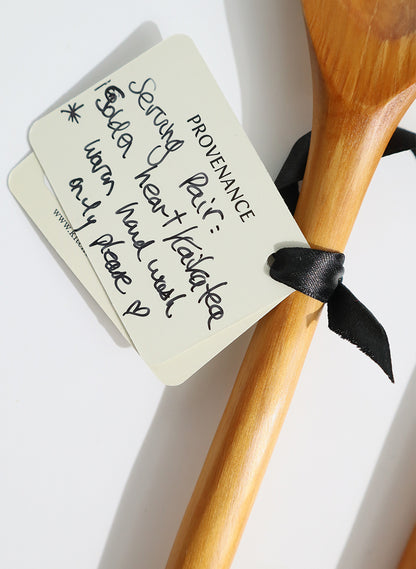 PROVENANCE
Serving Pair:
'Golden heart Kaikatea
* warm hand wash
only please ♡